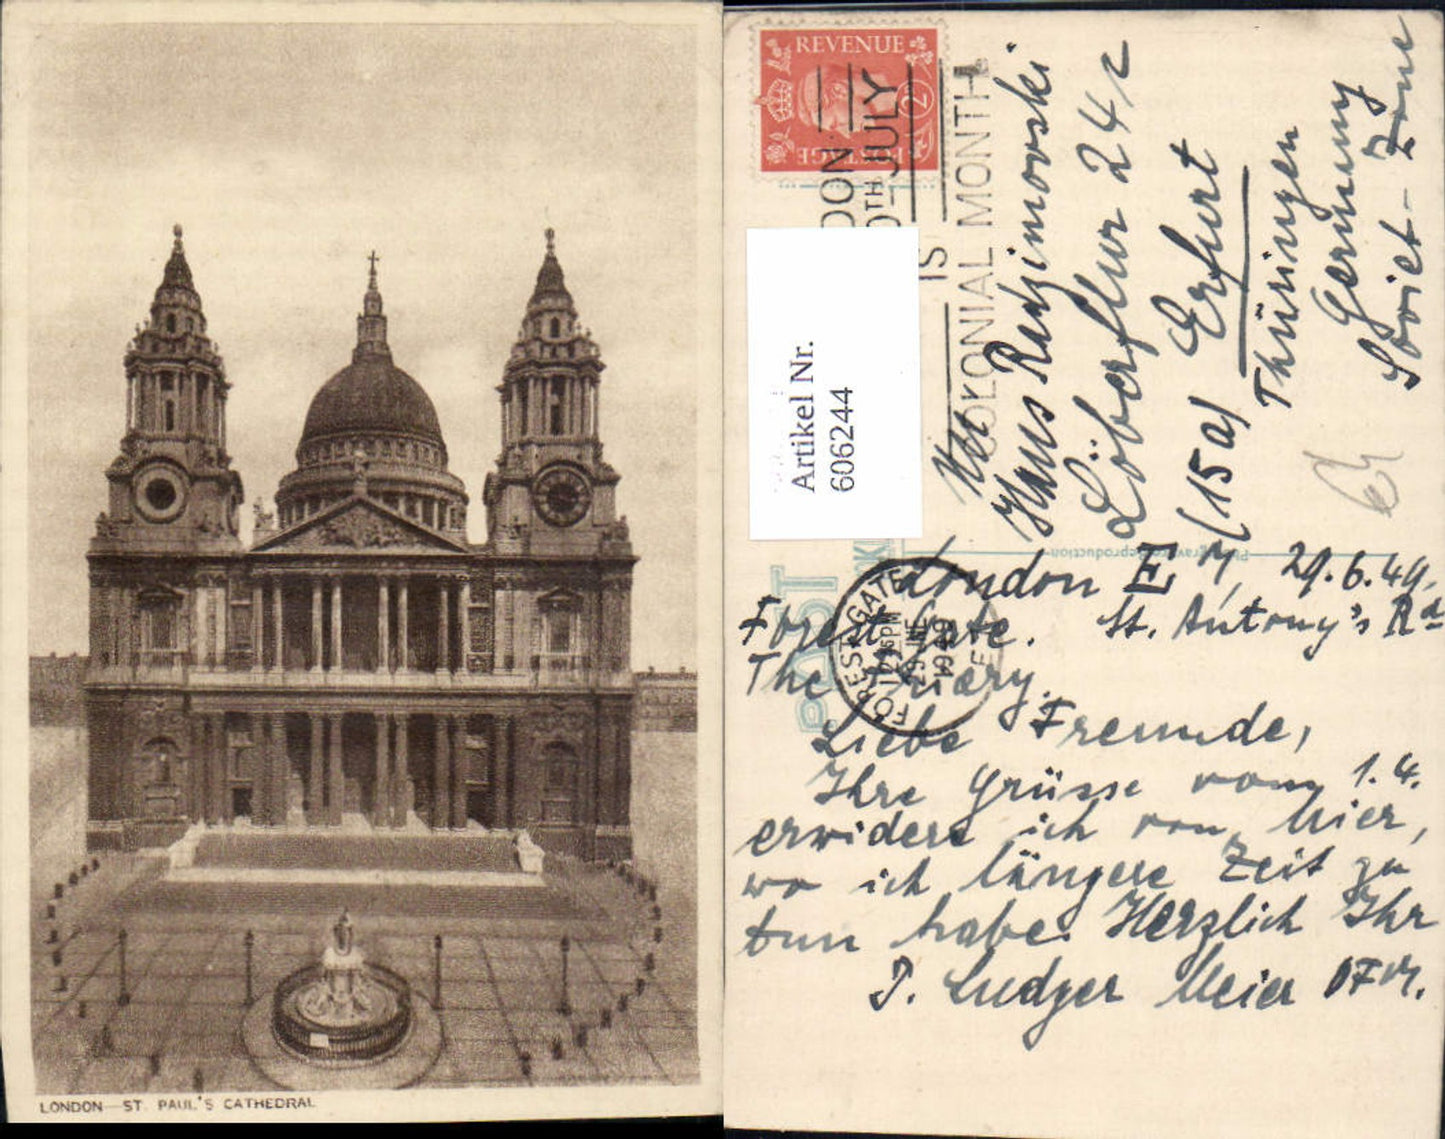 LONDON—ST. PAUL'S CATHEDRAL
REVENUE
2
POSTAGE
DON
0TH JULY
IS
COLONIAL MONTH
Artikel Nr.
606244
POST
FOREST GATE
12 15 PM
29 JNE
1949
E
Hans Radzimovski
Löberflur 24
(15a) Erfurt
Thüringen
Germany
Soviet-Zone
London E 7, 29.6.49.
Forest Gate. St. Antony's Rd
The Friary.
Liebe Freunde,
Ihre Grüsse vom 1.4.
erwidere ich von hier,
wo ich längere Zeit zu
tun habe. Herzlich Ihr
P. Ludger Meier OFM.